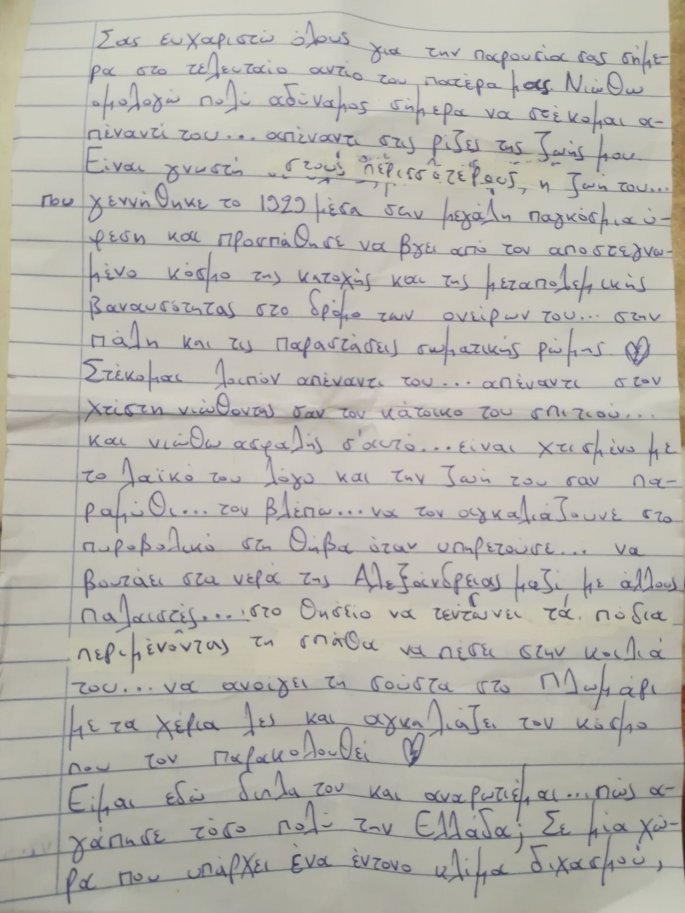 Σας ευχαριστώ όλους για την παρουσία σας σήμε-
ρα στο τελευταίο αντίο του πατέρα μας. Νιώθω
ομολογώ πολύ αδύναμος σήμερα να στέκομαι α-
πέναντί του... απέναντι στις ρίζες της ζωής μου.
Είναι γνωστή στους περισσότερους, η ζωή του...
που γεννήθηκε το 1929 μέσα στην μεγάλη παγκόσμια ύ-
φεση και προσπάθησε να βγει από τον αποστεγνω-
μένο κόσμο της κατοχής και της μεταπολεμικής
βαναυσότητας στο δρόμο των ονείρων του... στην
πάλη και τις παραστάσεις σωματικής ρώμης
Στέκομαι λοιπόν απέναντι του... απέναντι στον
χτίστη νιώθοντας σαν τον κάτοικο του σπιτιού...
και νιώθω ασφαλής σ'αυτό... είναι χτισμένο με
το λαϊκό του λόγο και την ζωή του σαν πα-
ραμύθι... τον βλέπω... να τον αγκαλιάζουνε στο
πυροβολικό στη Θήβα όταν υπηρετούσε... να
βουτάει στα νερά της Αλεξάνδρειας μαζί με άλλους
παλαιστές.... στο Θησείο να τεντώνει τα πόδια
περιμένοντας τη σπάθα να πέσει στην κοιλιά
του... να ανοίγει τη σούστα στο Πλωμάρι
με τα χέρια λες και αγκαλιάζει τον κόσμο
που τον παρακολουθεί
Είμαι εδώ δίπλα του και αναρωτιέμαι... πώς α-
γάπησε τόσο πολύ την Ελλάδα; Σε μια χώ-
ρα που υπάρχει ένα έντονο κλίμα διχασμού,